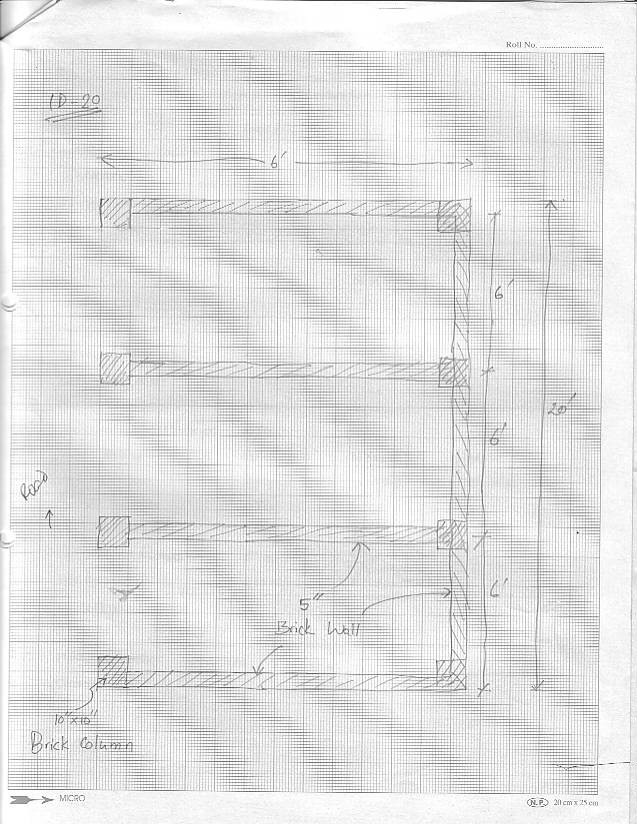 Roll No.
1D-20
6'
6'
20'
6'
Road
6'
5"
Brick Wall
10"x10"
Brick Column
MICRO
N.P. 20 cm x 25 cm